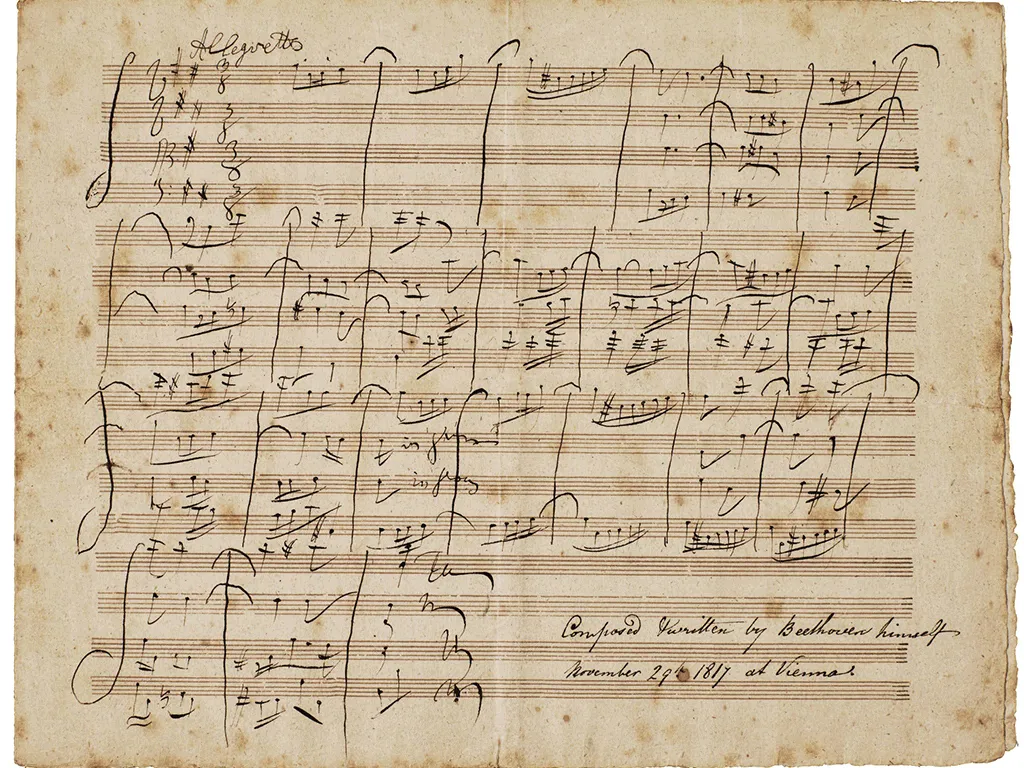 Allegretto
Composed & written by Beethoven himself
November 29th 1817 at Vienna.